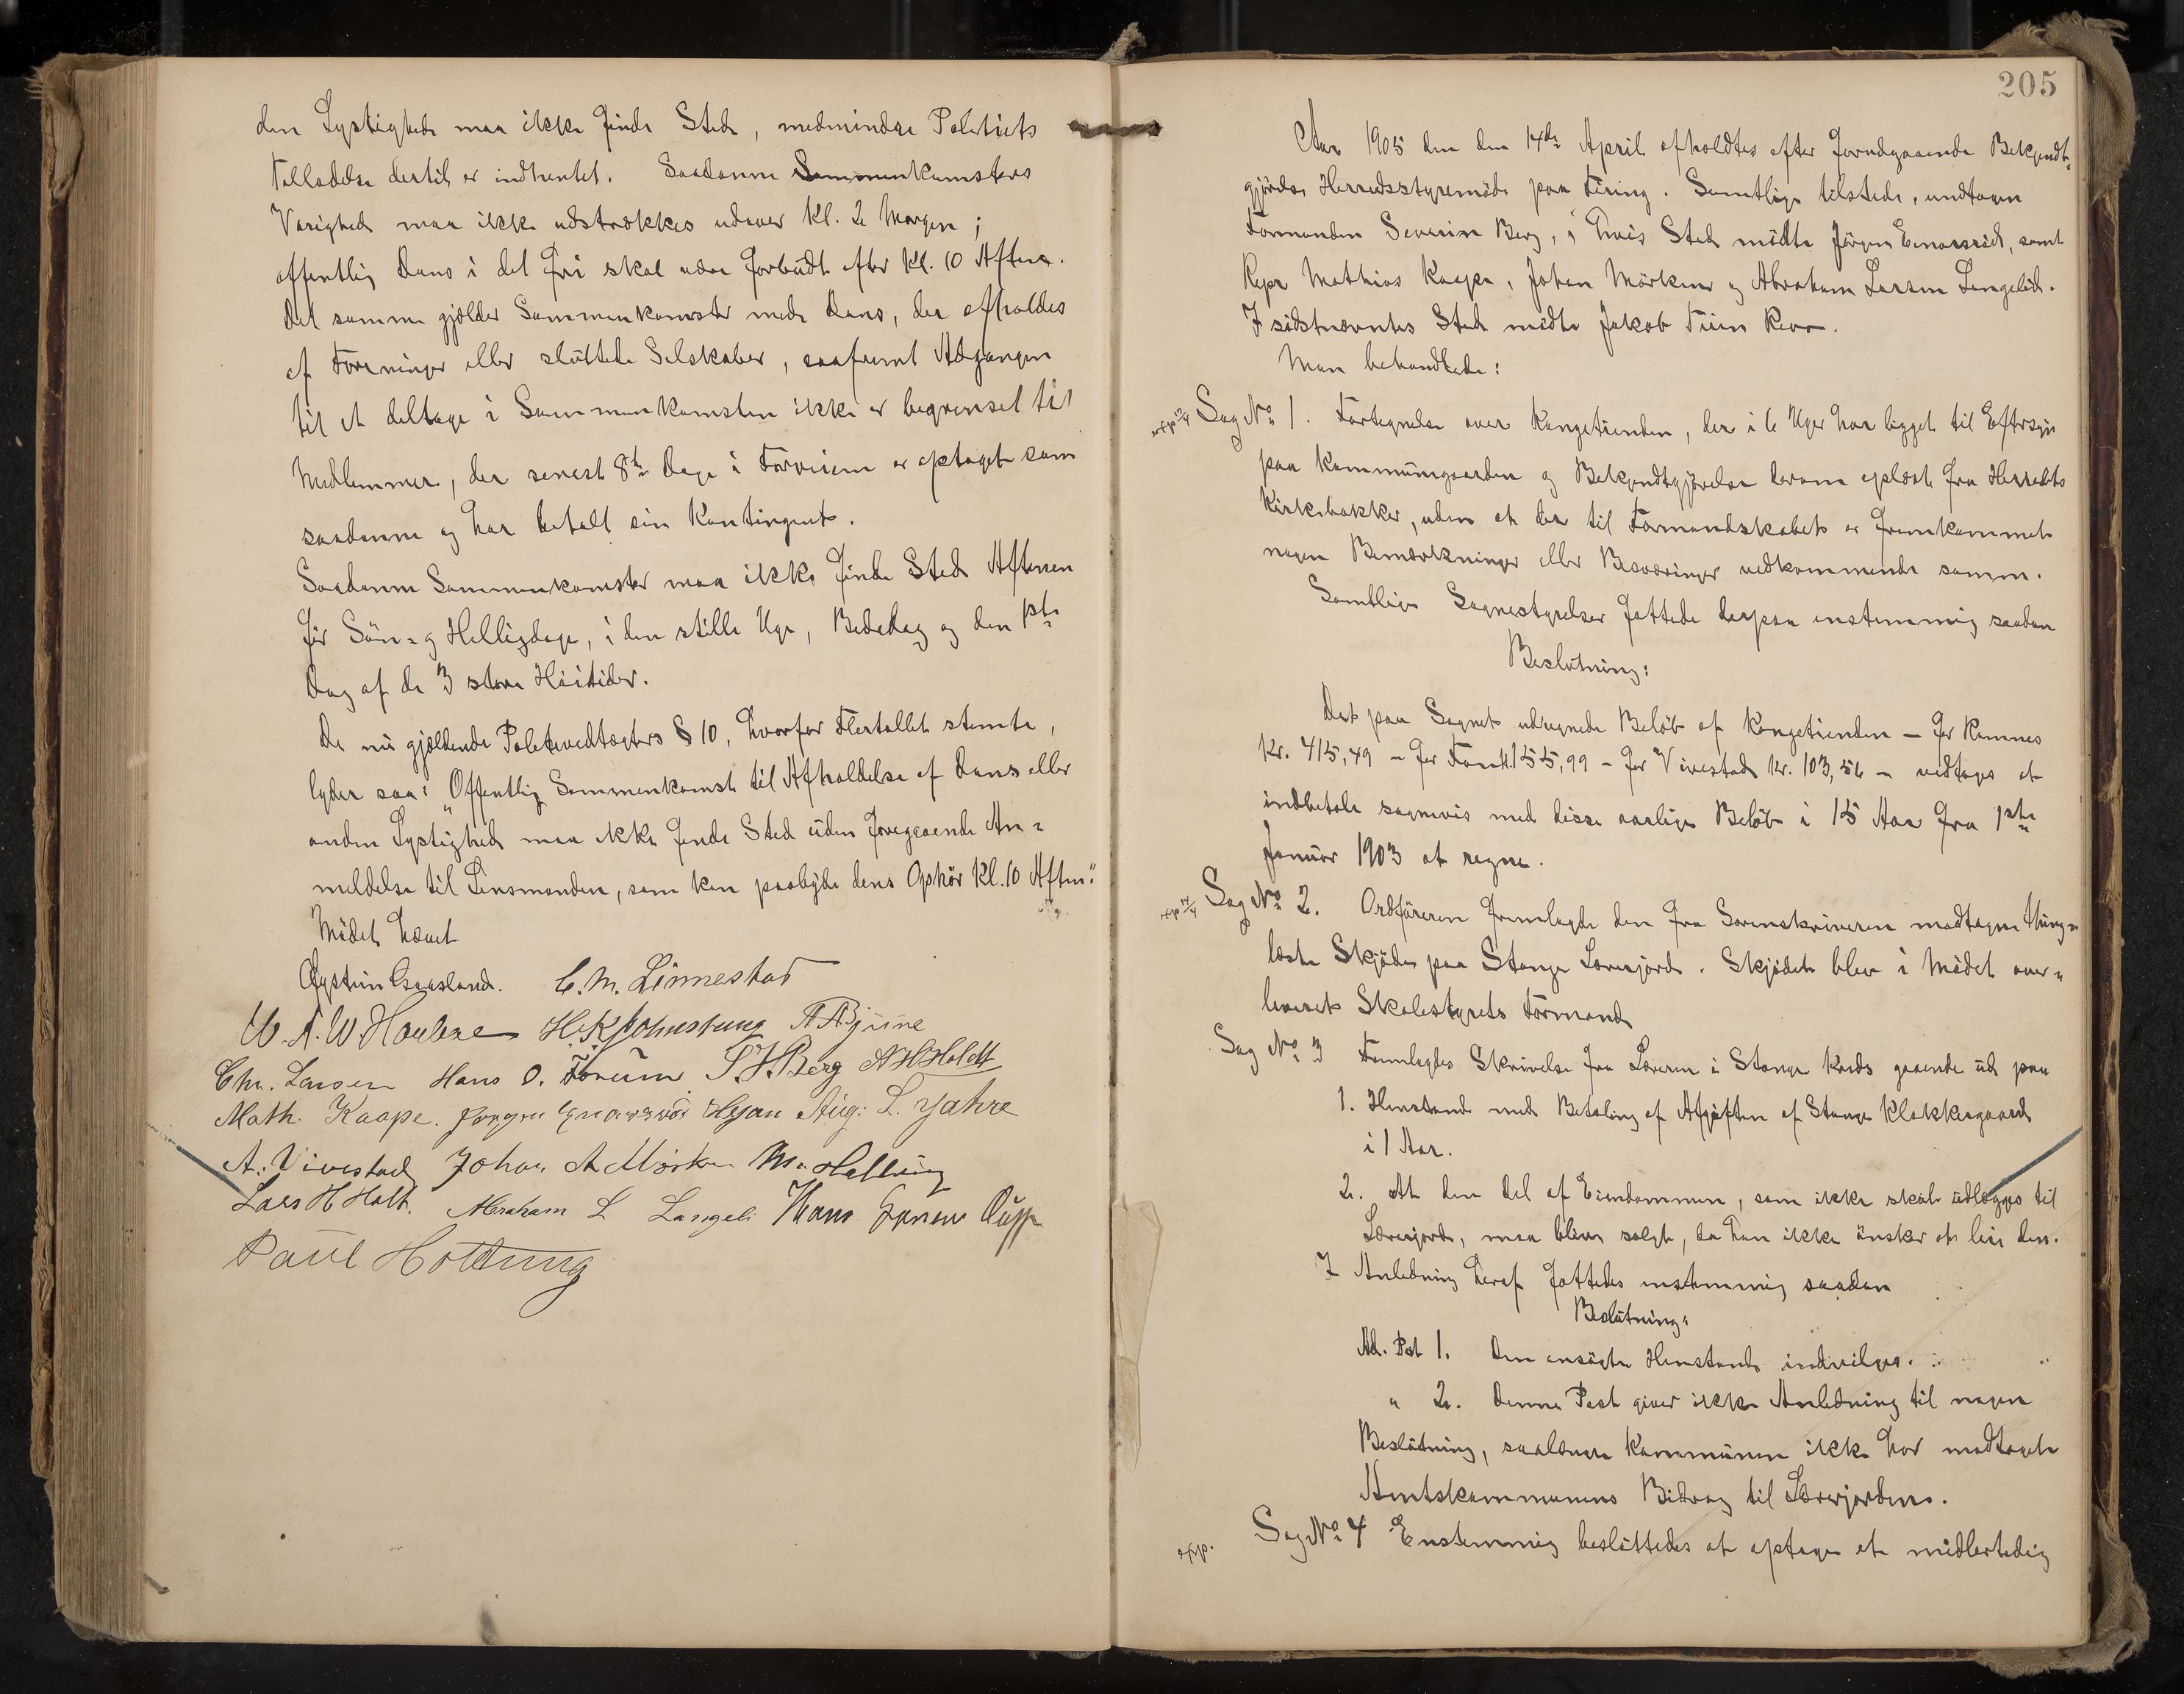 den Lystighed maa ikke finde Sted, medmindre Politiets
Tilladelse dertil er indhentet. Saadanne Sammenkomsters
Varighed maa ikke udstrækkes udover Kl. 2 Morgen;
offentlig Dans i det fri skal være forbudt efter Kl. 10 Aften.
Det samme gjælder Sammenkomster med Dans, der afholdes
af Foreninger eller sluttede Selskaber, saafremt Adgangen
til at deltage i Sammenkomsten ikke er begrænset til
Medlemmer, der senest 8te Dage i Forveien er optaget som
saadanne og har betalt sin Kontingent.
Saadanne Sammenkomster maa ikke finde Sted Aftenen
før Søn- og Helligdage, i den stille Uge, Bededag og den 1ste
Dag af de 3 store Høitider.
De nu gjældende Politivedtægters § 10, hvorfor Flertallet stemte,
lyder saa: "Offentlig Sammenkomst til Afholdelse af Dans eller
anden Lystighed maa ikke finde Sted uden foregaaende An-
meldelse til Lensmanden, som kan paabyde dens Ophør Kl. 10 Aften."
Mødet hævet
C. M. Linnestad
Chr. Larsen Hans O. Forum S. H. Berg A H Holdt
Math. Kaape. Jørgen Aug: L. Jahre
A. Vivestad Johan A Mørken M. Hallning
Lars H Holt. Abraham L Langeli Hans
Paul Hotvung
205
Aar 1905 den den 14de April afholdtes efter forudgaaende Bekjendt-
gjørelse Herredsstyremøde paa Firing. Samtlige tilstede, undtagen
Formanden Severin Berg, i hvis Sted mødte Jørgen Enarsrød, samt
Repr Mathias Kaape, Johan Mørken og Abraham Larsen Langelid.
I sidstnævntes Sted mødte Jakob
Man behandlede:
Sag No 1. Fortegnelse over Kongetienden, der i 6 Uger har ligget til Eftersyn
paa Kommunegaarden og Bekjendtgjørelse derom oplæst fra Herredets
Kirkebakker, uden at der til Formandskabet er fremkommet
nogen Bemærkninger eller Besværinger vedkommende samme.
Samtlige Sognestyrelser fattede derpaa enstemmig saadan
Beslutning:
Det paa Sognet udregnede Beløb af Kongetienden – for Ramnes
Kr. 415,49 – for Fon Kr. 155,99 – for Vivestad Kr. 103,56 – vedtages at
indbetale sognevis med disse aarlige Beløb i 15 Aar fra 1ste
Januar 1903 at regne.
Sag No 2. Ordføreren fremlagde den fra Sorenskriveren modtagne thing-
læste Skjøde paa Stange Lærerjord. Skjødet blev i Mødet over-
leveret Skolestyrets Formand
Sag No 3 Fremlagdes Skrivelse fra Læreren i Stange Kreds gaaende ud paa
1. Henstand med Betaling af Afgiften af Stange Klokkergaard
i 1 Aar.
2. At den Del af Eiendommen, som ikke skal udlægges til
Lærerjord, maa blive solgt, da han ikke ønsker at leie den.
I Anledning heraf fattedes enstemmig saadan
Beslutning:
Ad. Post 1. Den ansøgte Henstand indvilges.
" 2. Denne Post giver ikke Anledning til nogen
Beslutning, saalænge Kommunen ikke har modtaget
Amtskommunens Bidrag til Lærerjorden.
exp. Sag No 4 Enstemmig besluttedes at optage et midlertidig